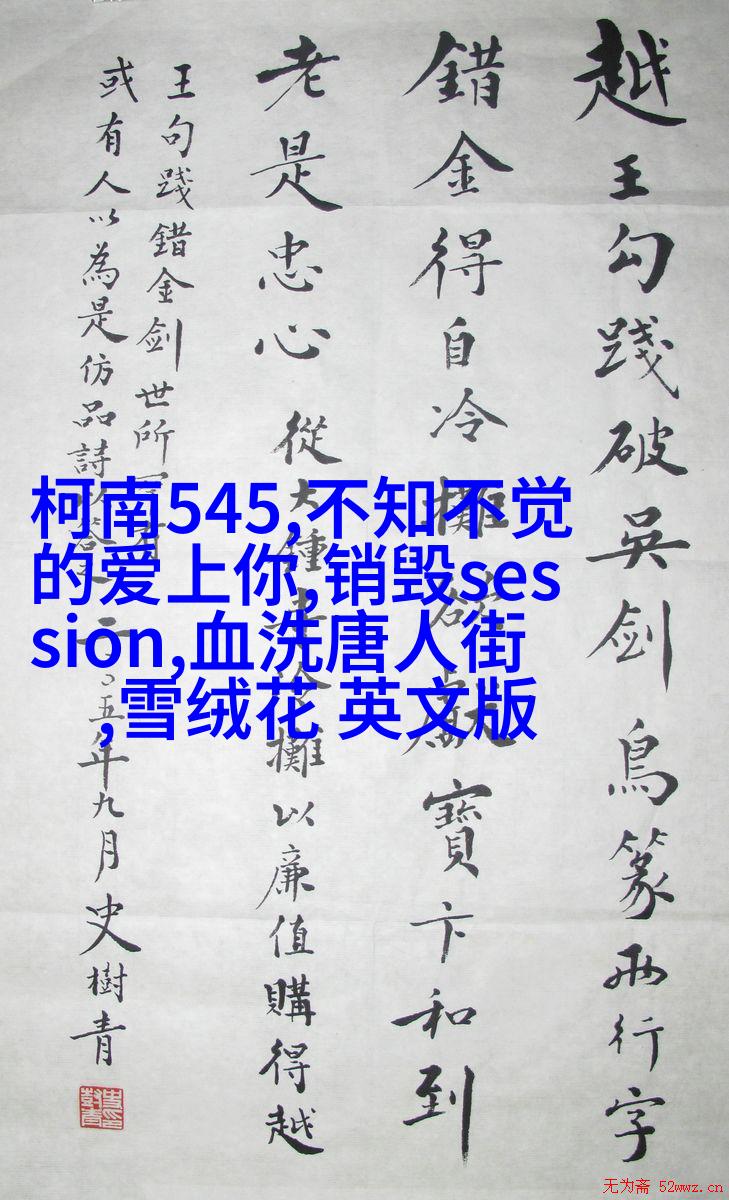 越王勾踐破吳剑 鳥篆兩行字
錯金得自冷攤 寶卞和到
老是忠心 從大鐘寺冷攤以廉值購得越
王句踐錯金剑世所
或有人以為是仿品詩以 二〇〇五年九月史樹青
柯南545,不知不觉
的爱上你,销毁ses
sion,血洗唐人街
,雪绒花 英文版
无为斋 52wwz.cn